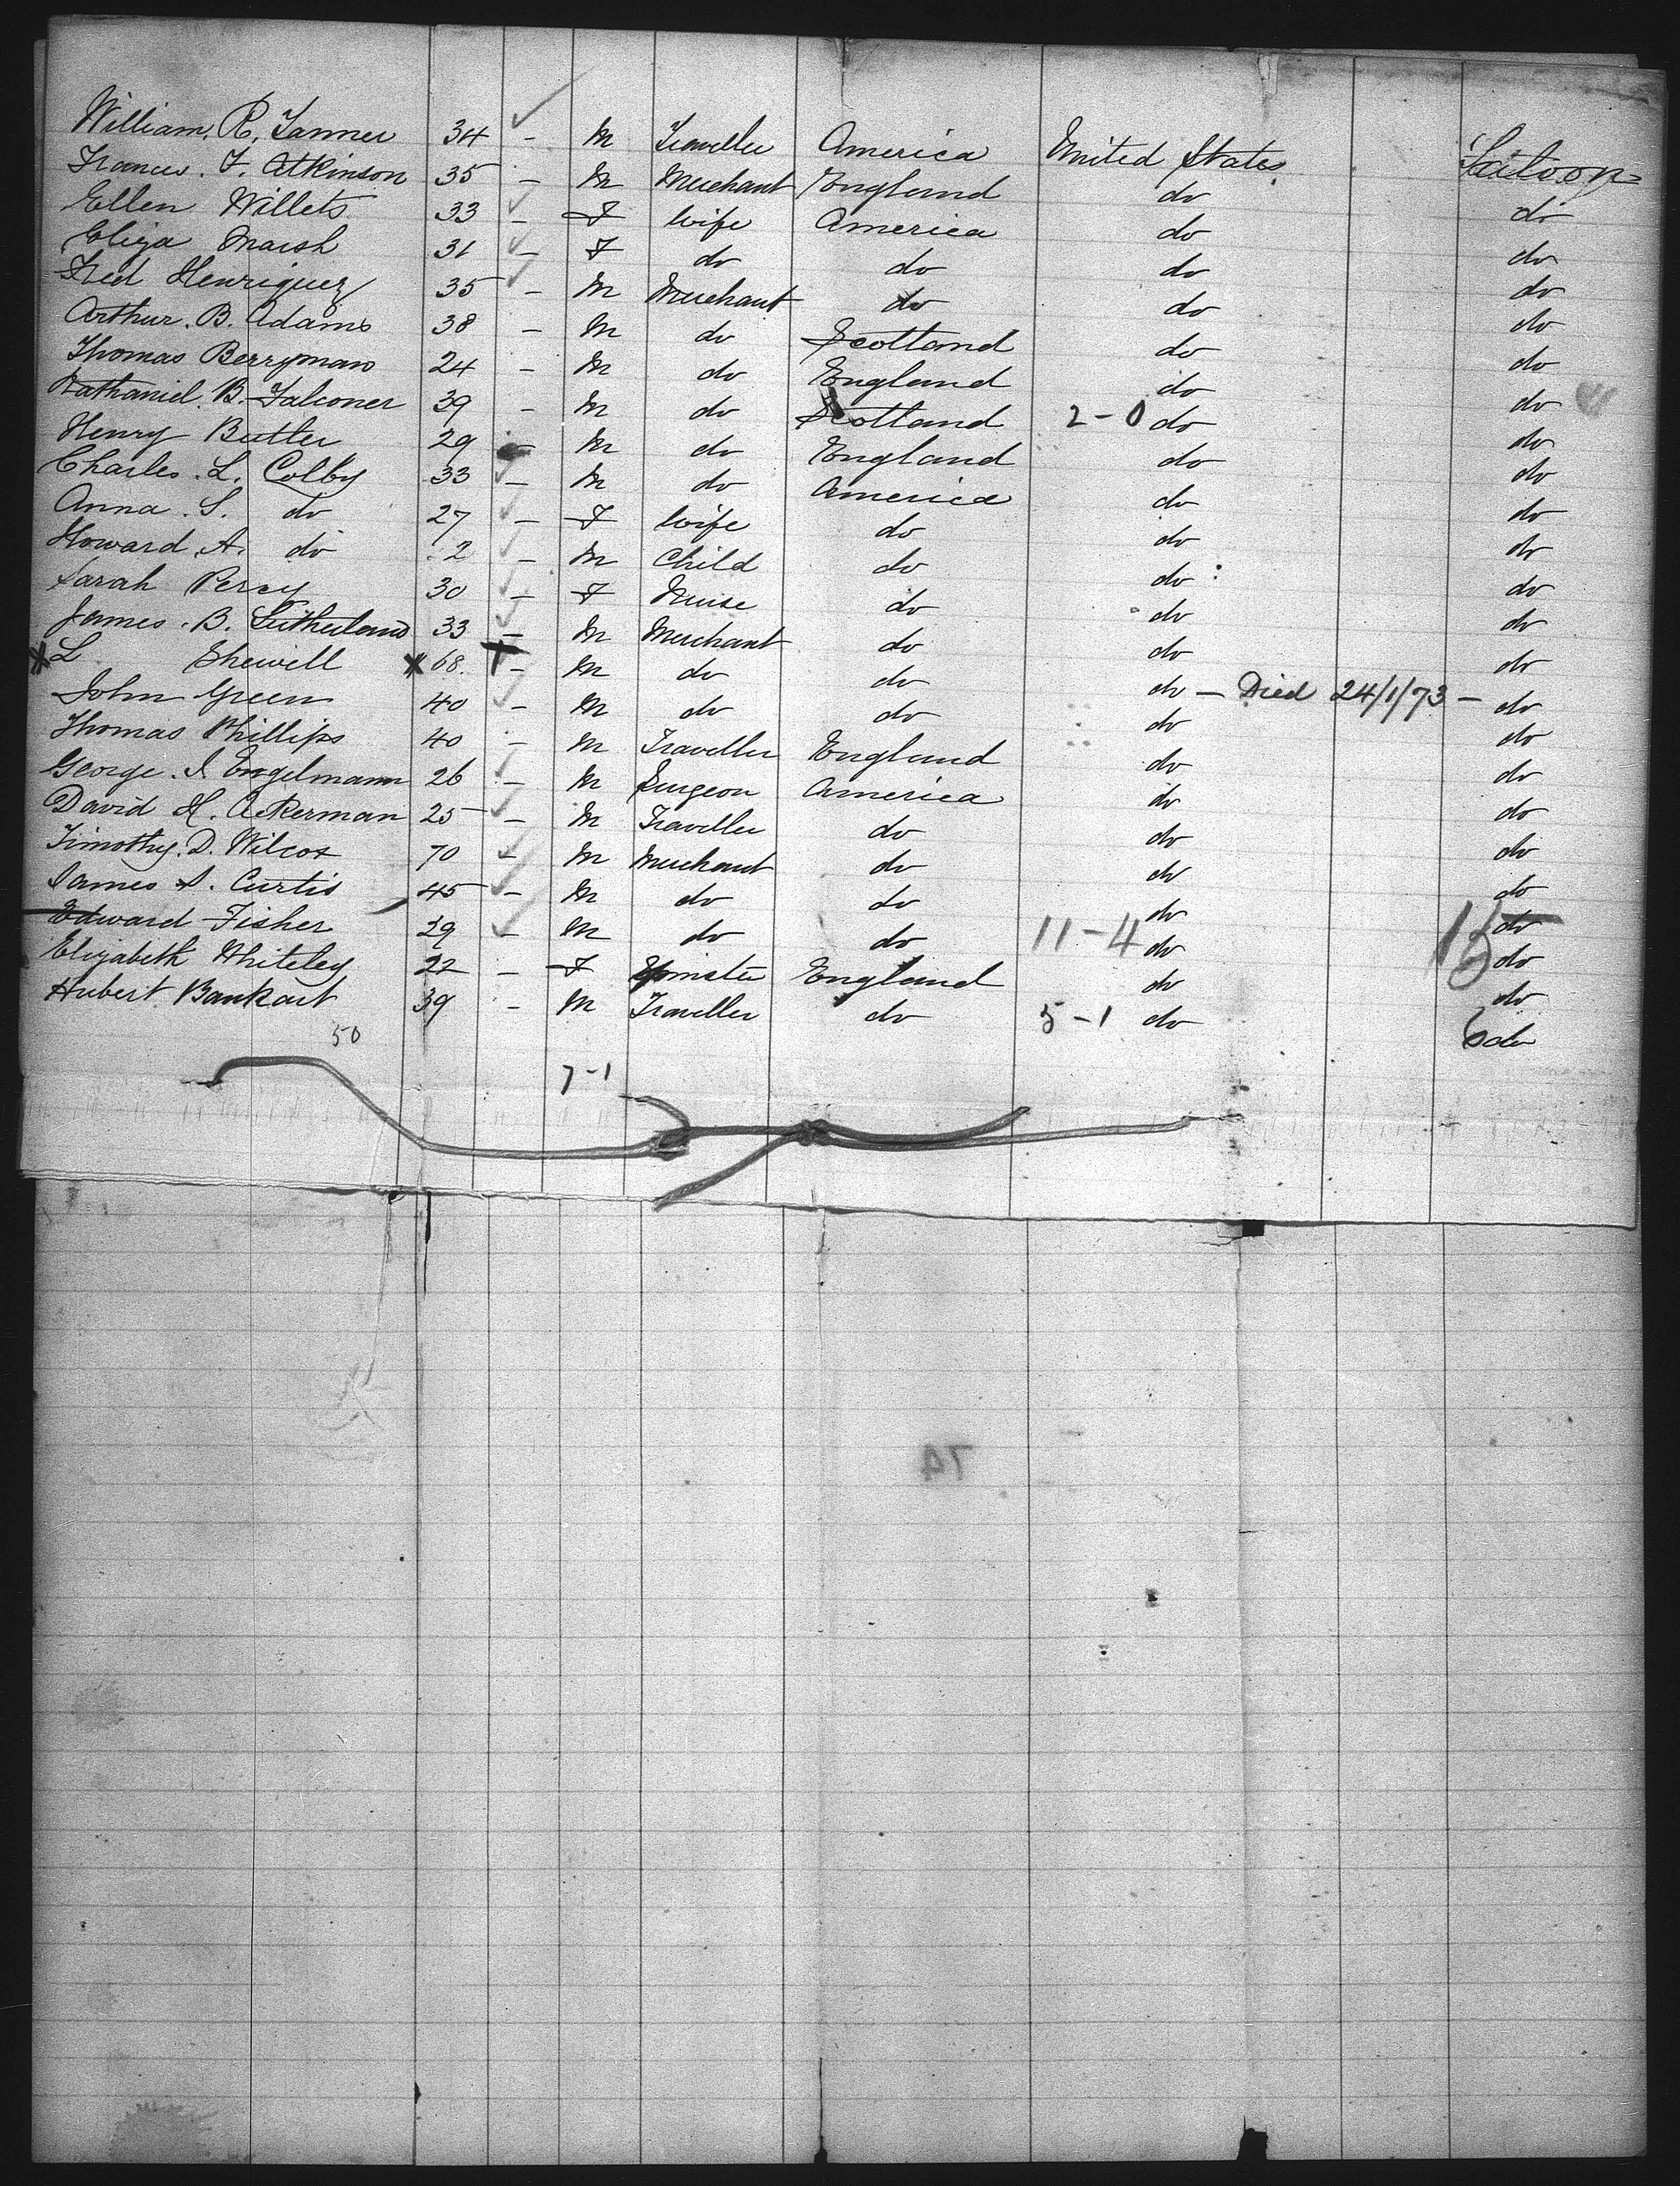 William. R. Tanner 34 - M Traveller America United States Saloon
Frances. F. Atkinson 35 - M Merchant England do do
Ellen Willets 33 - F Wife America do do
Eliza Marsh 31 - F do do do do
Fred Henriquez 35 - M Merchant do do do
Arthur. B. Adams 38 - M do Scotland do do
Thomas Berryman 24 - M do England do do
Nathaniel. B. Falconer 39 - M do Scotland 2-0 do do
Henry Butler 29 - M do England do do
Charles. L. Colby 33 - M do America do do
Anna. S. do 27 - F Wife do do do
Howard. A. do 2 - M Child do do do
Sarah Percy 30 - F Nurse do do do
James. B. Sutherland 33 - M Merchant do do do
L Shewell 68. - M do do do - Died 24/1/73 - do
John Green 40 - M do do do do
Thomas Phillips 40 - M Traveller England do do
George. J. Engelmann 26 - M Surgeon America do do
David H. Ackerman 25 - M Traveller do do do
Timothy. D. Wilcox 70 - M Merchant do do do
James S. Curtis 45 - M do do do do
Edward Fisher 29 - M do do 11-4 do do
Elizabeth Whiteley 22 - F Spinster England do do
Hubert Bankart 39 - M Traveller do 5-1 do 6 do
50
7-1
74